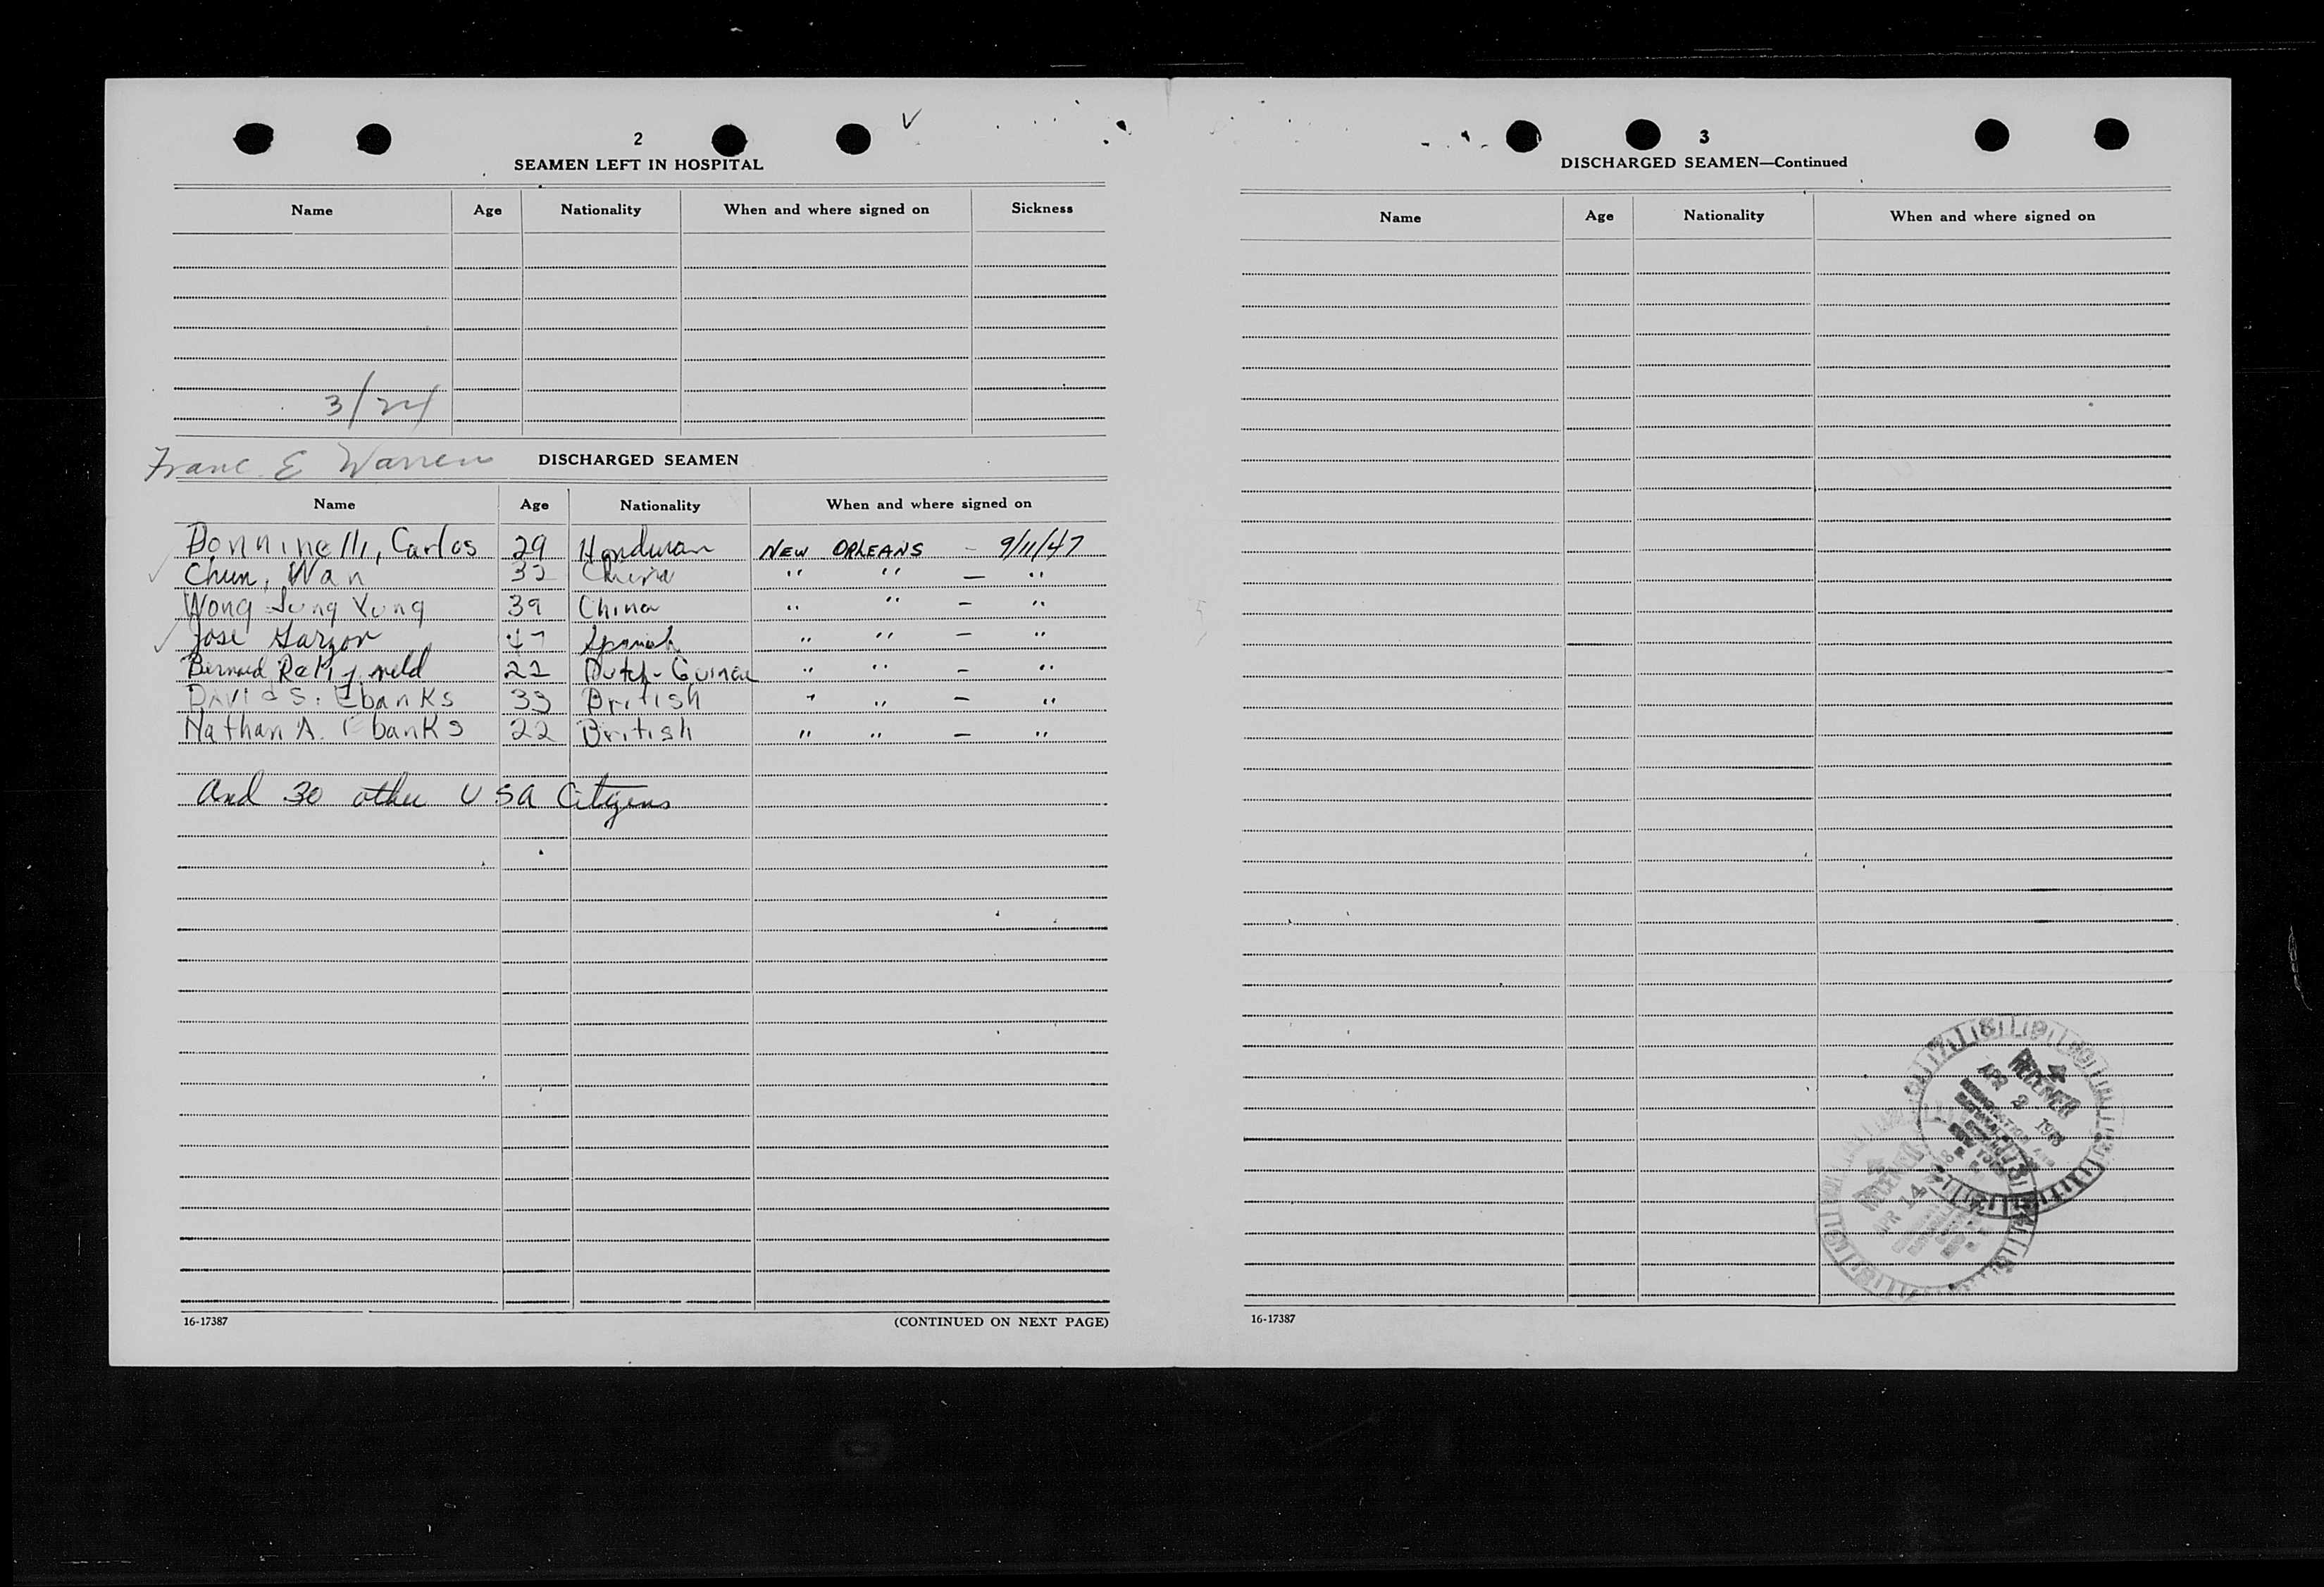 2
SEAMEN LEFT IN HOSPITAL
Name Age Nationality When and where signed on Sickness
3/24
Franc E Warren
DISCHARGED SEAMEN
Name Age Nationality When and where signed on
Donninelli, Carlos 29 Honduran NEW ORLEANS - 9/11/47
Chun, Wan 32 China " " — "
Wong Sung Yung 39 China " " — "
Jose Garzon Spanish " " — "
Bernard 22 Dutch-Guinea " " — "
David S. Ebanks 33 British " " — "
Nathan A. Ebanks 22 British " " — "
And 30 other USA Citizens
16-17387 (CONTINUED ON NEXT PAGE)
3
DISCHARGED SEAMEN—Continued
Name Age Nationality When and where signed on
RECEIVED
APR 2 1948
RECEIVED
APR 14
16-17387